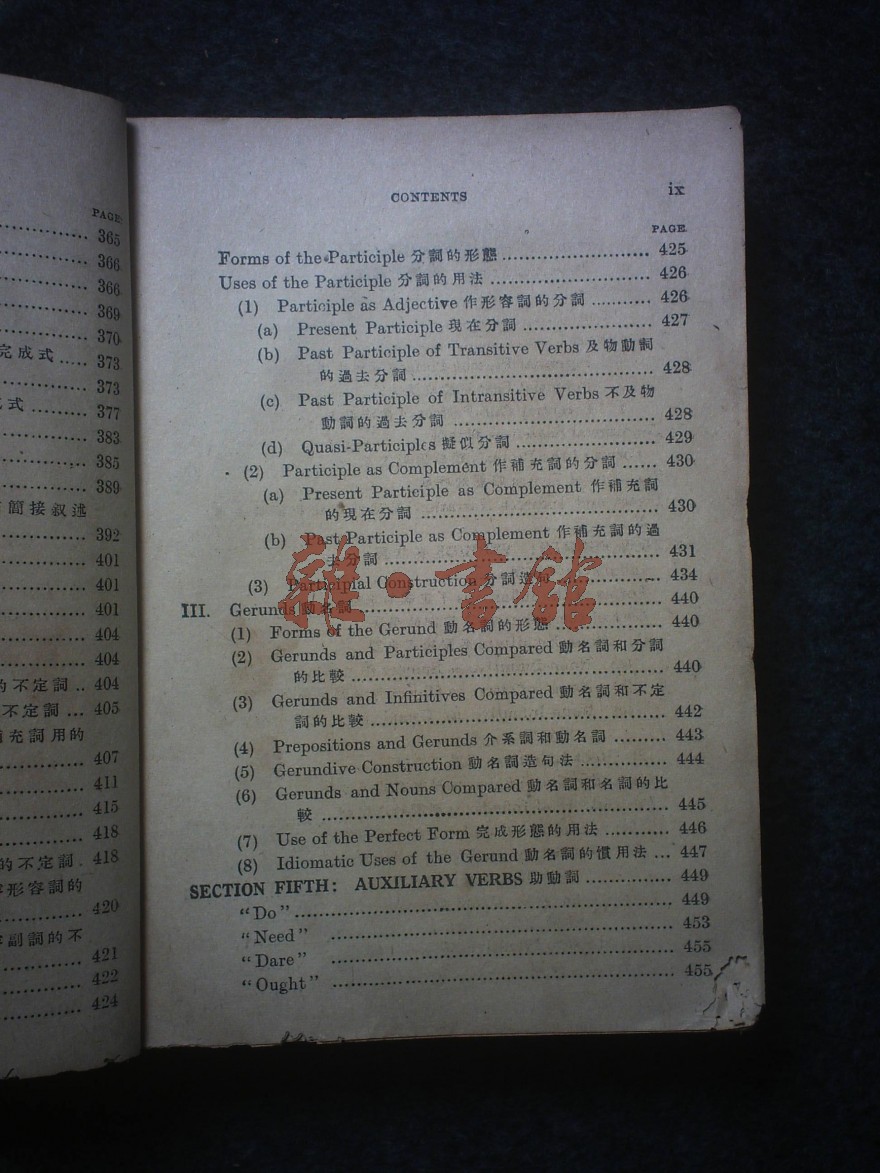 PAGE
365
366
366
369
370
完成式 ..... 373
373
式 ......... 377
383
385
389
簡接叙述
392
401
401
401
404
404
的不定詞 .. 404
不定詞 ... 405
補充詞用的
407
411
415
418
的不定詞. 418
形容詞的
420
副詞的不
421
422
424
CONTENTS ix
PAGE
Forms of the Participle 分詞的形態 ........................ 425
Uses of the Participle 分詞的用法 .......................... 426
(1) Participle as Adjective 作形容詞的分詞 ........... 426
(a) Present Participle 現在分詞 ..................... 427
(b) Past Participle of Transitive Verbs 及物動詞
的過去分詞 ........................................ 428
(c) Past Participle of Intransitive Verbs 不及物
動詞的過去分詞 ................................. 428
(d) Quasi-Participles 擬似分詞 ....................... 429
(2) Participle as Complement 作補充詞的分詞 ...... 430
(a) Present Participle as Complement 作補充詞
的現在分詞 ....................................... 430
(b) Past Participle as Complement 作補充詞的過
去分詞 ............................................. 431
(3) Participial Construction 分詞造句 .................. 434
III. Gerunds 動名詞 .................................................. 440
(1) Forms of the Gerund 動名詞的形態 ................... 440
(2) Gerunds and Participles Compared 動名詞和分詞
的比較 .................................................... 440
(3) Gerunds and Infinitives Compared 動名詞和不定
詞的比較 ................................................. 442
(4) Prepositions and Gerunds 介系詞和動名詞 ......... 443
(5) Gerundive Construction 動名詞造句法 .............. 444
(6) Gerunds and Nouns Compared 動名詞和名詞的比
較 ......................................................... 445
(7) Use of the Perfect Form 完成形態的用法 ........... 446
(8) Idiomatic Uses of the Gerund 動名詞的慣用法 ... 447
SECTION FIFTH: AUXILIARY VERBS 助動詞 .............. 449
“Do” .............................................................. 449
“Need” .......................................................... 453
“Dare” .......................................................... 455
“Ought” ......................................................... 455
雜·書館